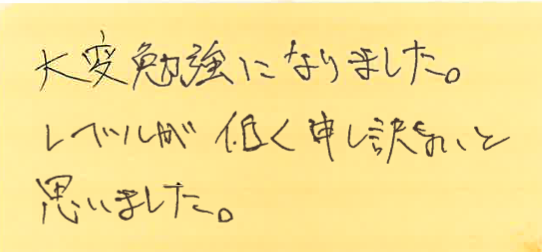 大変勉強になりました。
レベルが低く申し訳ないと
思いました。